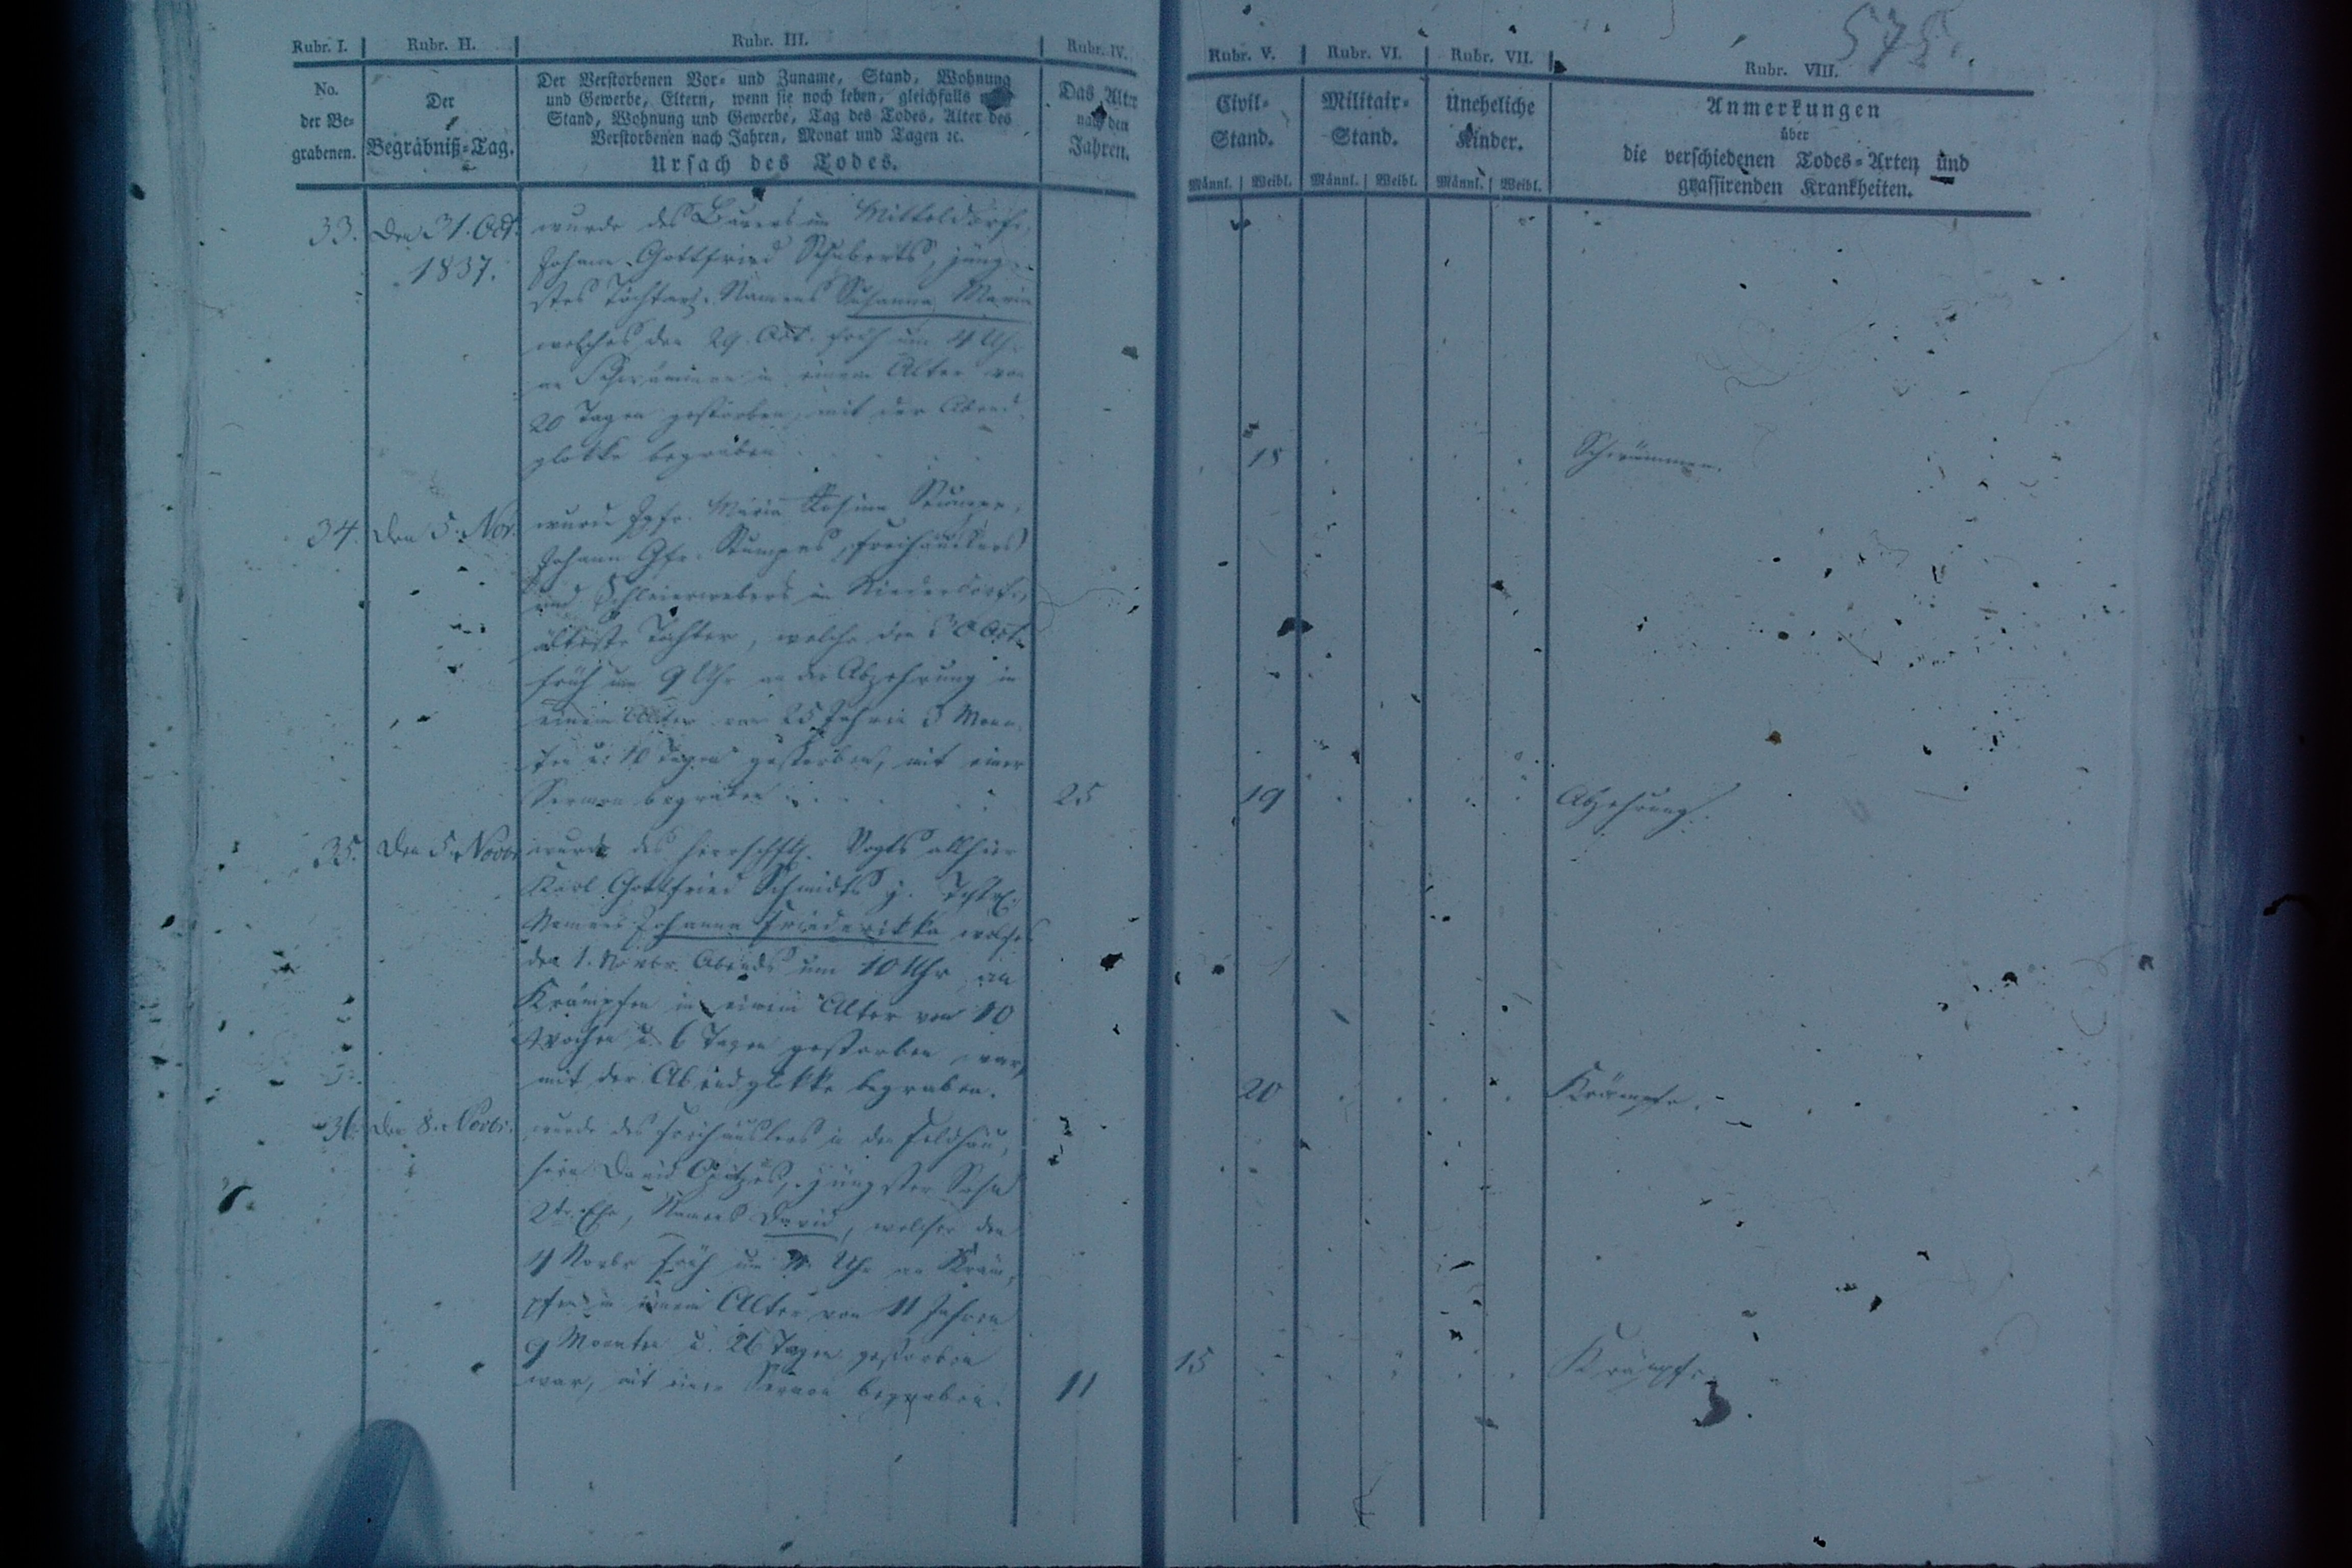 575.
Rubr. I. Rubr. II. Rubr. III. Rubr. IV. Rubr. V. Rubr. VI. Rubr. VII. Rubr. VIII.
No.
der Be=
grabenen.
Der
Begräbniß=Tag.
Der Verstorbenen Vor= und Zuname, Stand, Wohnung
und Gewerbe, Eltern, wenn sie noch leben, gleichfalls
Stand, Wohnung und Gewerbe, Tag des Todes, Alter des
Verstorbenen nach Jahren, Monat und Tagen ꝛc.
Ursach des Todes.
Das Alter
nach den
Jahren.
Civil=
Stand.
Männl. Weibl.
Militair=
Stand.
Männl. Weibl.
Uneheliche
Kinder.
Männl. Weibl.
Anmerkungen
über
die verschiedenen Todes=Arten und
grassirenden Krankheiten.
33. Den 31. Oct. wurde des Bauers im Mitteldorfe,
1837. Johann Gottfried Schuberts, jüng=
stes Töchterl. Namens Susanna Maria
welches den 29. Oct. früh um 4 Uhr
an Schwämmen in einem Alter von
20 Tagen gestorben, mit der Abend
glokke begraben 18 Schwämmen.
34. Den 5. Nov. wurde Jgfr. Maria Rosina
Johann Gfr. Freihäuslers
und Schleierwebers in Niederdorfe,
älteste Tochter, welche den 30 Oct.
früh um 9 Uhr an der Abzehrung in
einem Alter von 25 Jahren 3 Mona=
ten u. 10 Tagen gestorben, mit einer
Sermon begraben 25 19 Abzehrung.
35. Den 5. Novbr wurde des herrschftl. Vogts allhier
Karl Gottfried Schmidts j. Töchterl.
Namens Johanna Friederikka welches
den 1. Novbr. Abends um 10 Uhr an
Krämpfen in einem Alter von 10
Wochen u. 6 Tagen gestorben war,
mit der Abendglokke begraben. 20 Krämpfe.
36. Den 8. Novbr. wurde des Freihäuslers in den Feldhäu=
sern David jüngster Sohn
2tr. Ehe, Namens David, welcher den
4 Novbr früh um Uhr an Kräm=
pfen in einem Alter von 11 Jahren
9 Monaten u. 26 Tagen gestorben
war, mit einer Sermon begraben. 11 15 Krämpfe